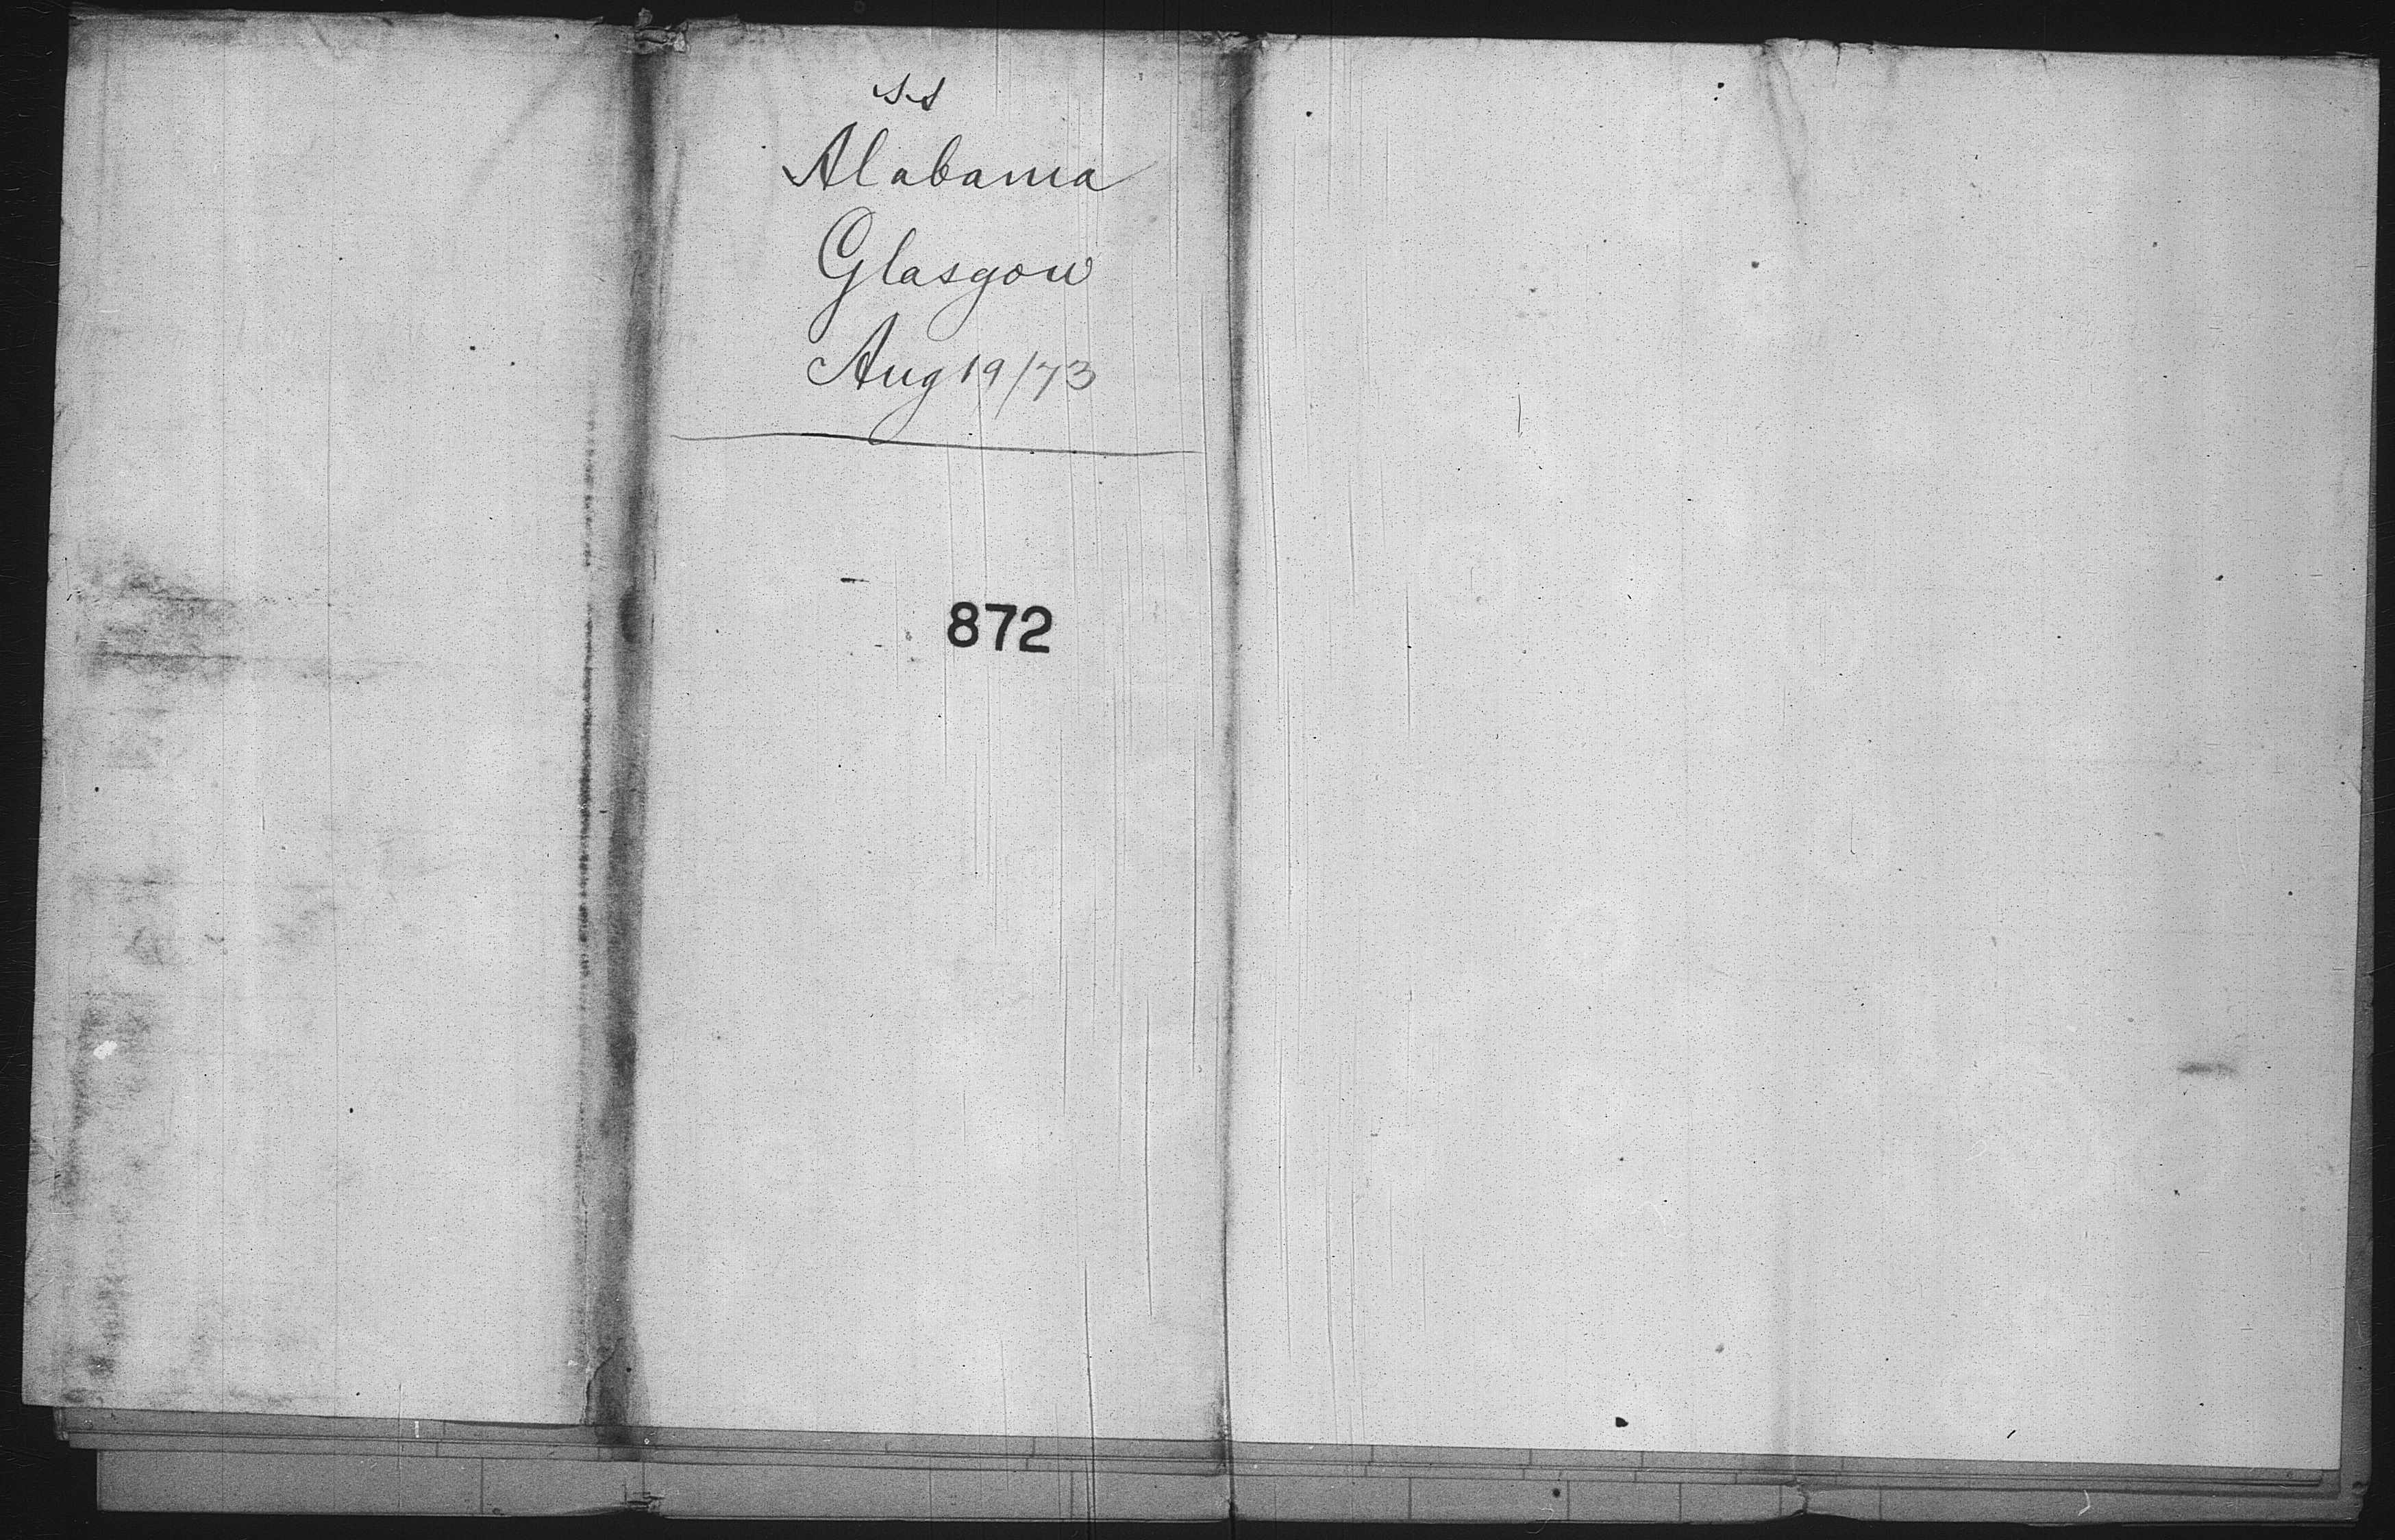 ss
Alabama
Glasgow
Aug 19/73
872